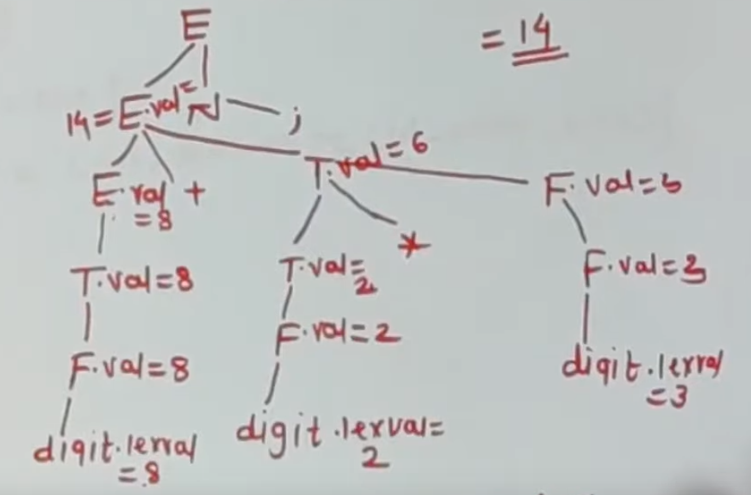 E
= 14
14 = E.val = N ;
T.val = 6
E.val + F.val = 3
= 8
*
T.val = 8 T.val = 2 F.val = 3
F.val = 8 F.val = 2
digit.lexval
= 3
digit.lexval digit.lexval =
= 8 2